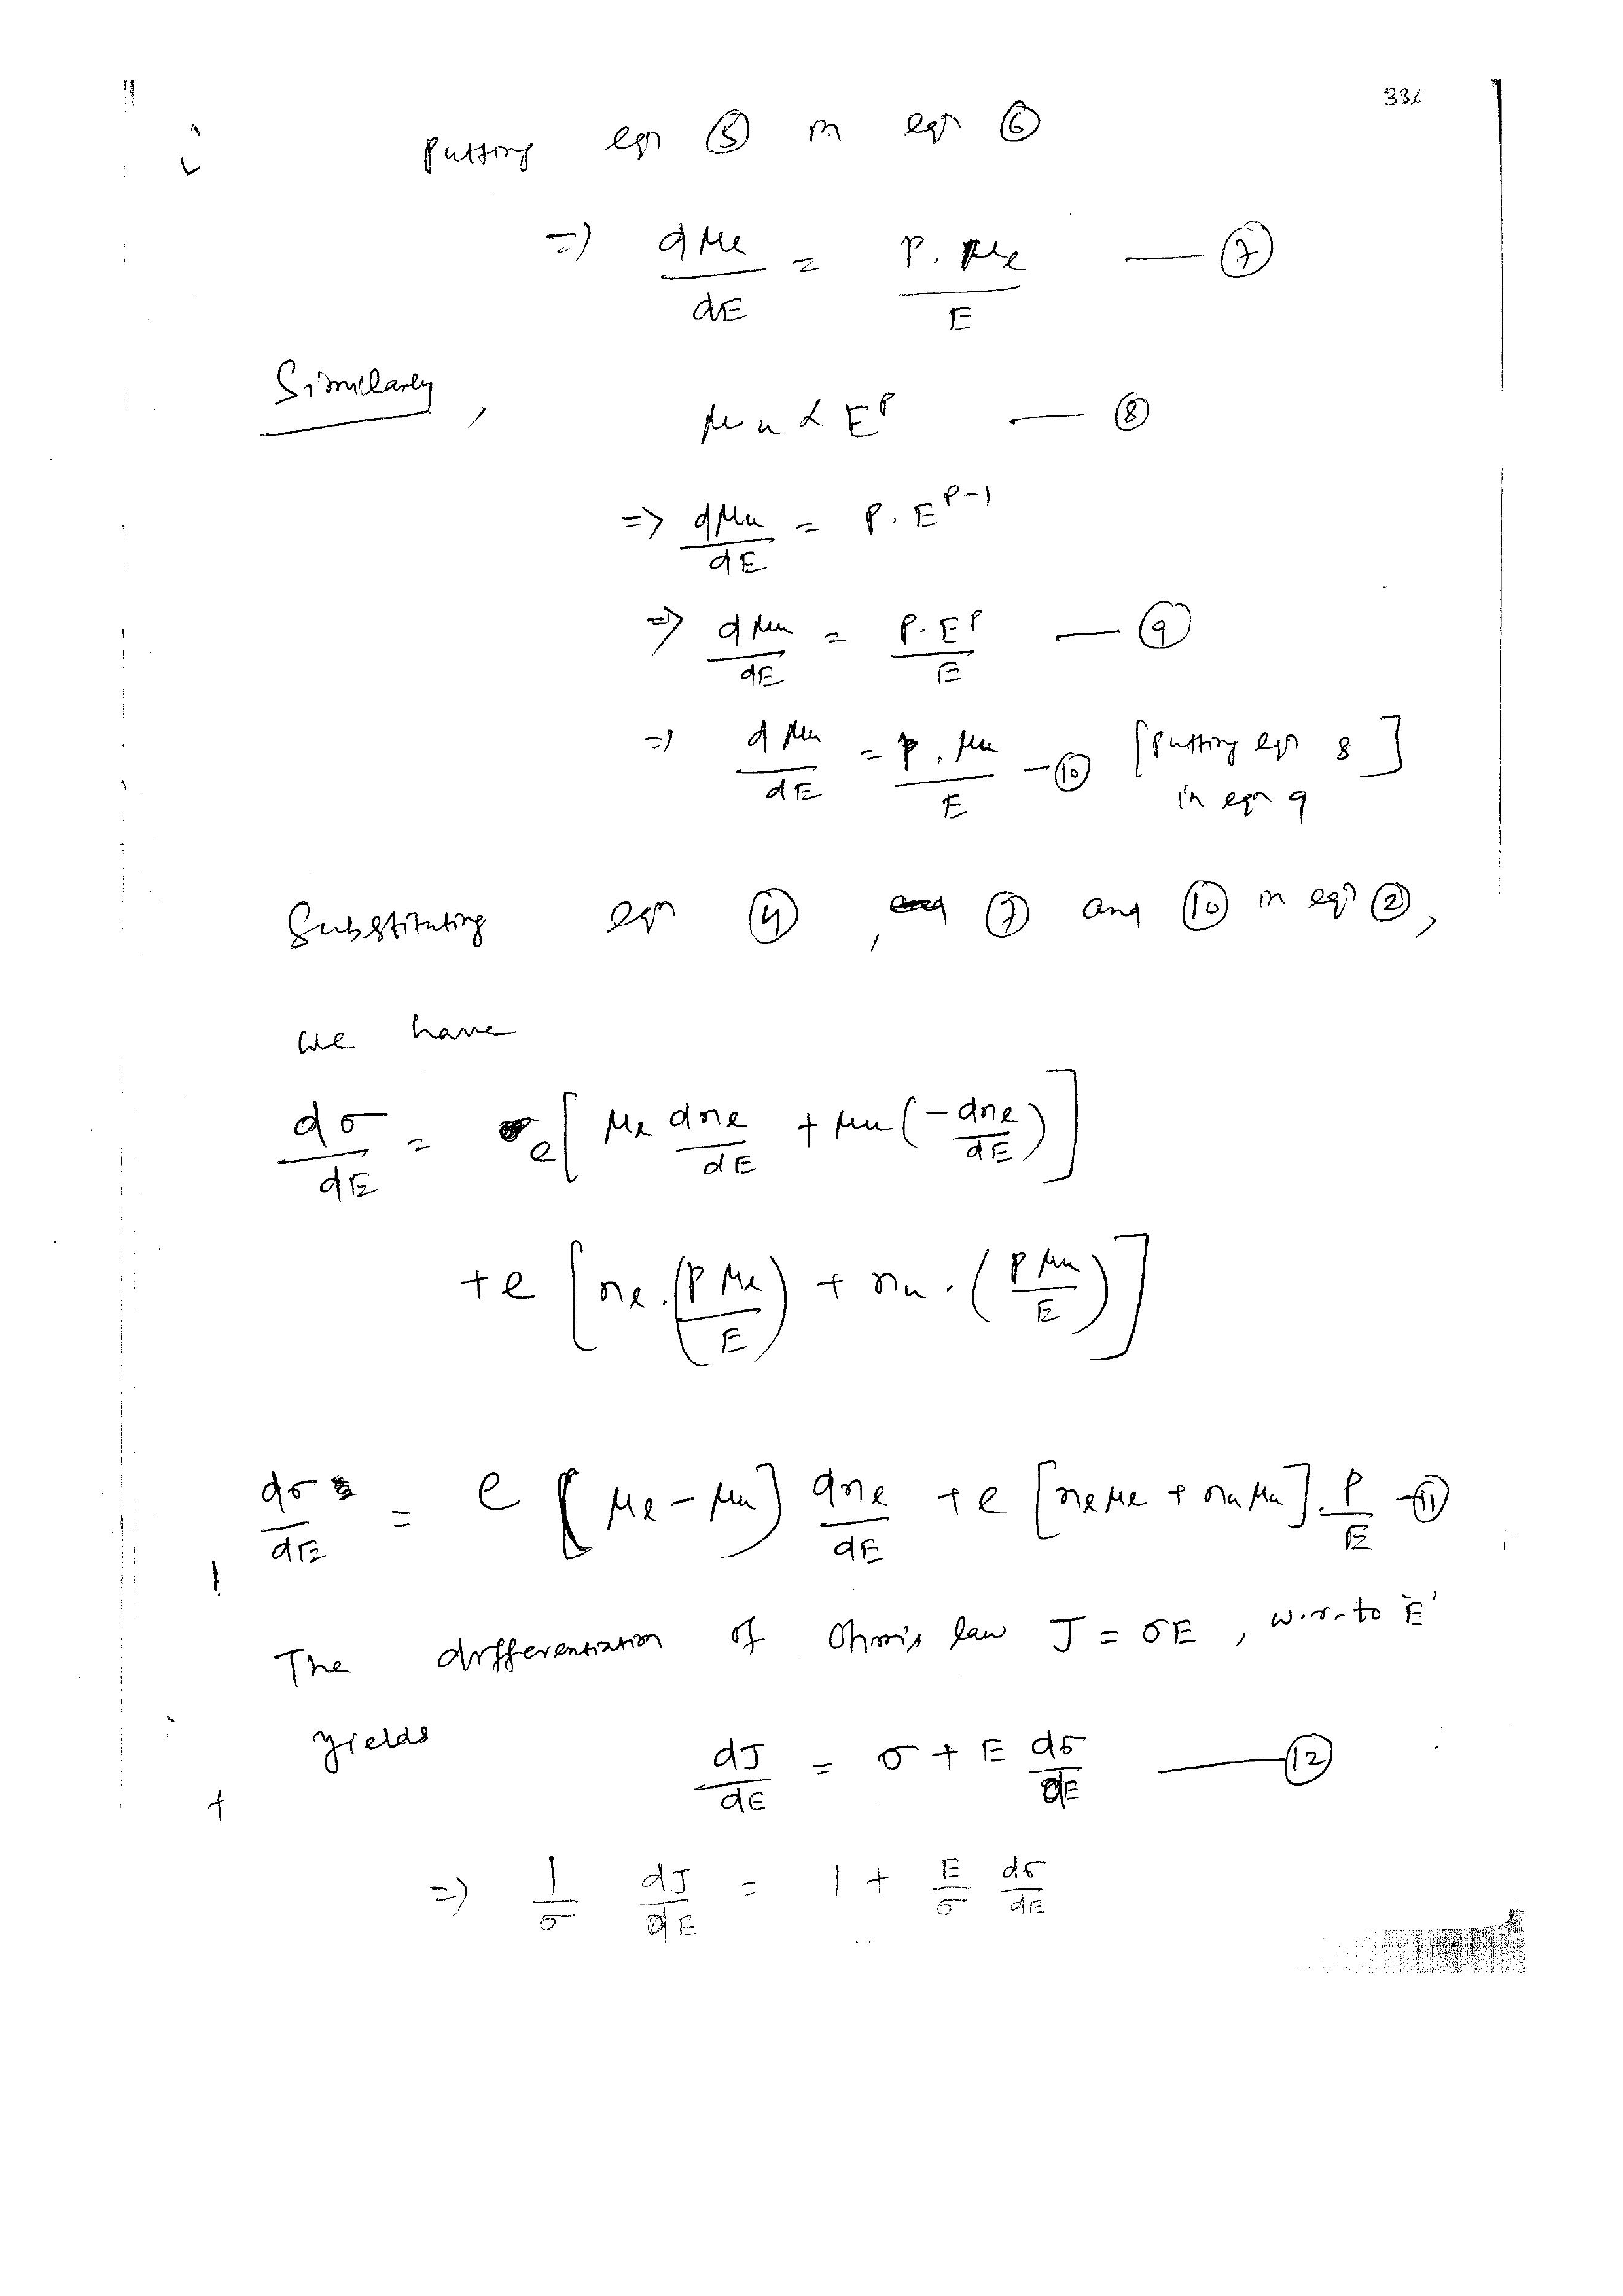 336
Putting eqn ⑤ in eqn ⑥
=> dμe/dE = P. μe/E — ⑦
Similarly, μu α E^P — ⑧
=> dμu/dE = P. E^(P-1)
=> dμu/dE = P. E^P/E — ⑨
=> dμu/dE = P. μu/E — ⑩ [Putting eqn 8 in eqn 9]
Substituting eqn ④, ⑦ and ⑩ in eqn ②,
we have
dσ/dE = e[μe dne/dE + μu(-dne/dE)]
+e [ne.(P μe/E) + nu.(P μu/E)]
dσ/dE = e [μe-μu] dne/dE +e [neμe + nuμu]. P/E — ⑪
The differentiation of Ohm's law J = σE, w.r.to 'E'
yields
dJ/dE = σ + E dσ/dE — ⑫
=> 1/σ dJ/dE = 1 + E/σ dσ/dE